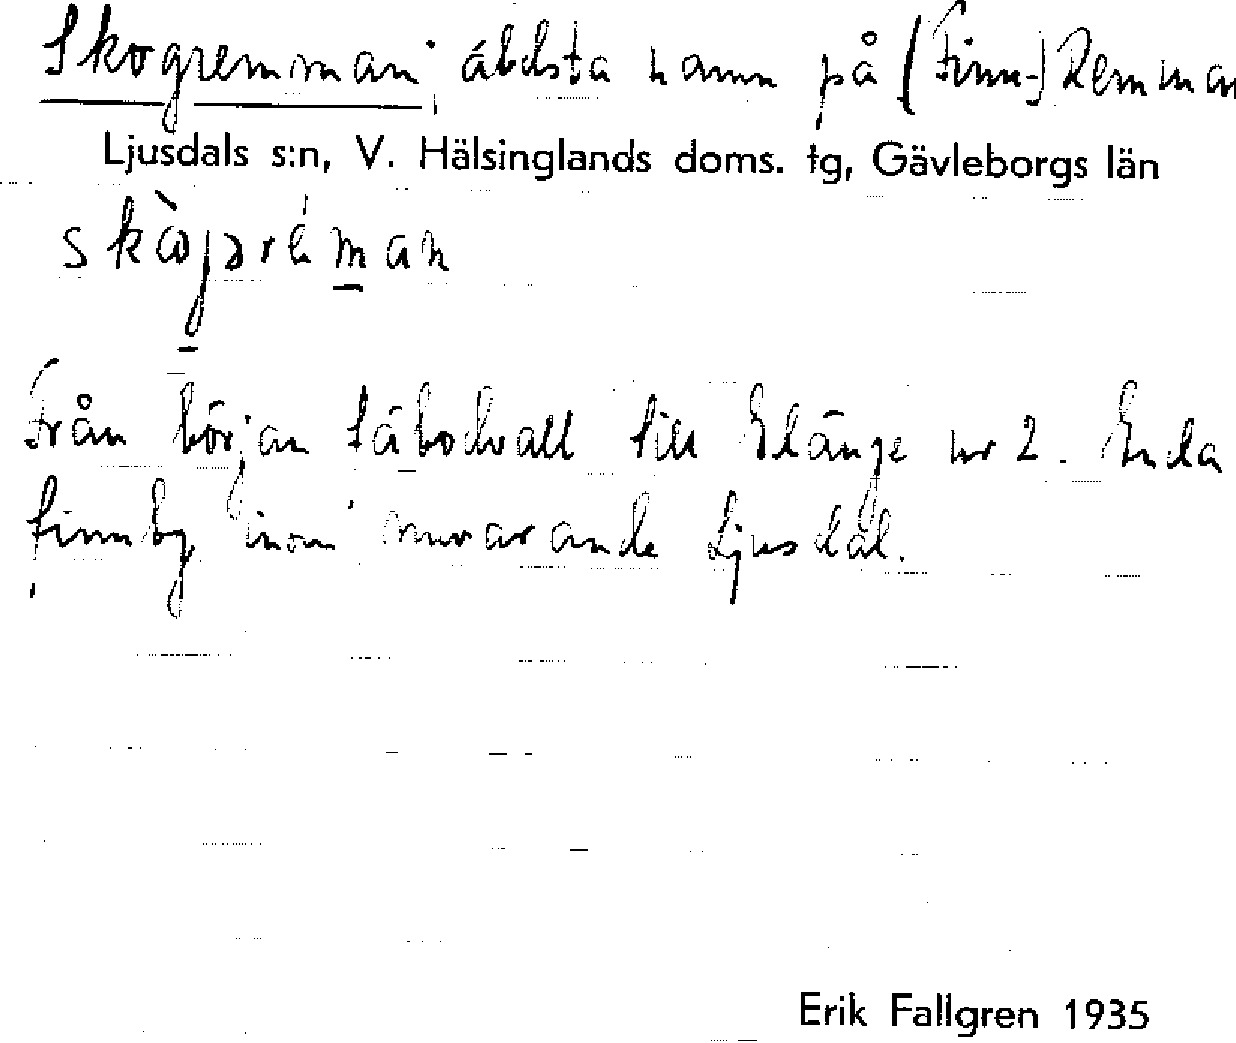 Skogremman, äldsta namn på (Finn-) Remman
Ljusdals s:n, V. Hälsinglands doms. tg, Gävleborgs län
Från början fäbodvall till Eldänge nr 2. Enda
finnby inom nuvarande Ljusdal.
Erik Fallgren 1935